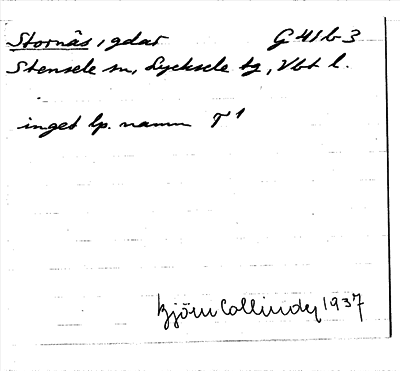 Stornäs, gdar G 41 b 3
Stensele sn, Lycksele tg, Vbt l.
inget lp. namn T¹
Björn Collinder 1937